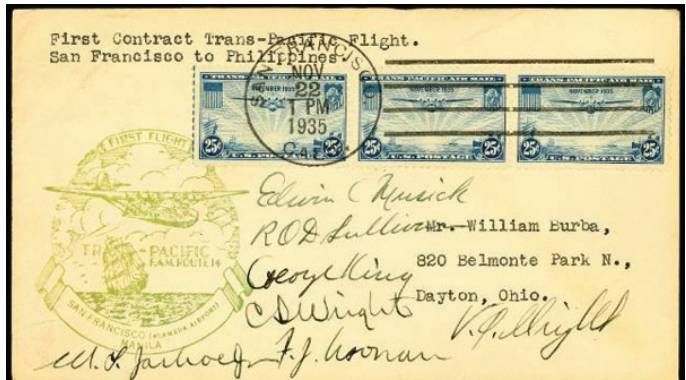 First Contract Trans-Pacific Flight.
San Francisco to Philippines
SAN FRANCISCO
NOV
22
1 PM
1935
CAL.
TRANS-PACIFIC AIR MAIL
NOVEMBER 1935
25¢ 25¢
U.S. POSTAGE
TRANS-PACIFIC AIR MAIL
NOVEMBER 1935
25¢ 25¢
U.S. POSTAGE
TRANS-PACIFIC AIR MAIL
NOVEMBER 1935
25¢ 25¢
U.S. POSTAGE
FIRST FLIGHT
PACIFIC
F.A.M. ROUTE 14
SAN FRANCISCO (ALAMEDA AIRPORT)
MANILA
Edwin C Musick
R O D Sullivan
George King
C D Wright
Mr. William Burba,
820 Belmonte Park N.,
Dayton, Ohio.
V. A. Wright
F. J. Noonan